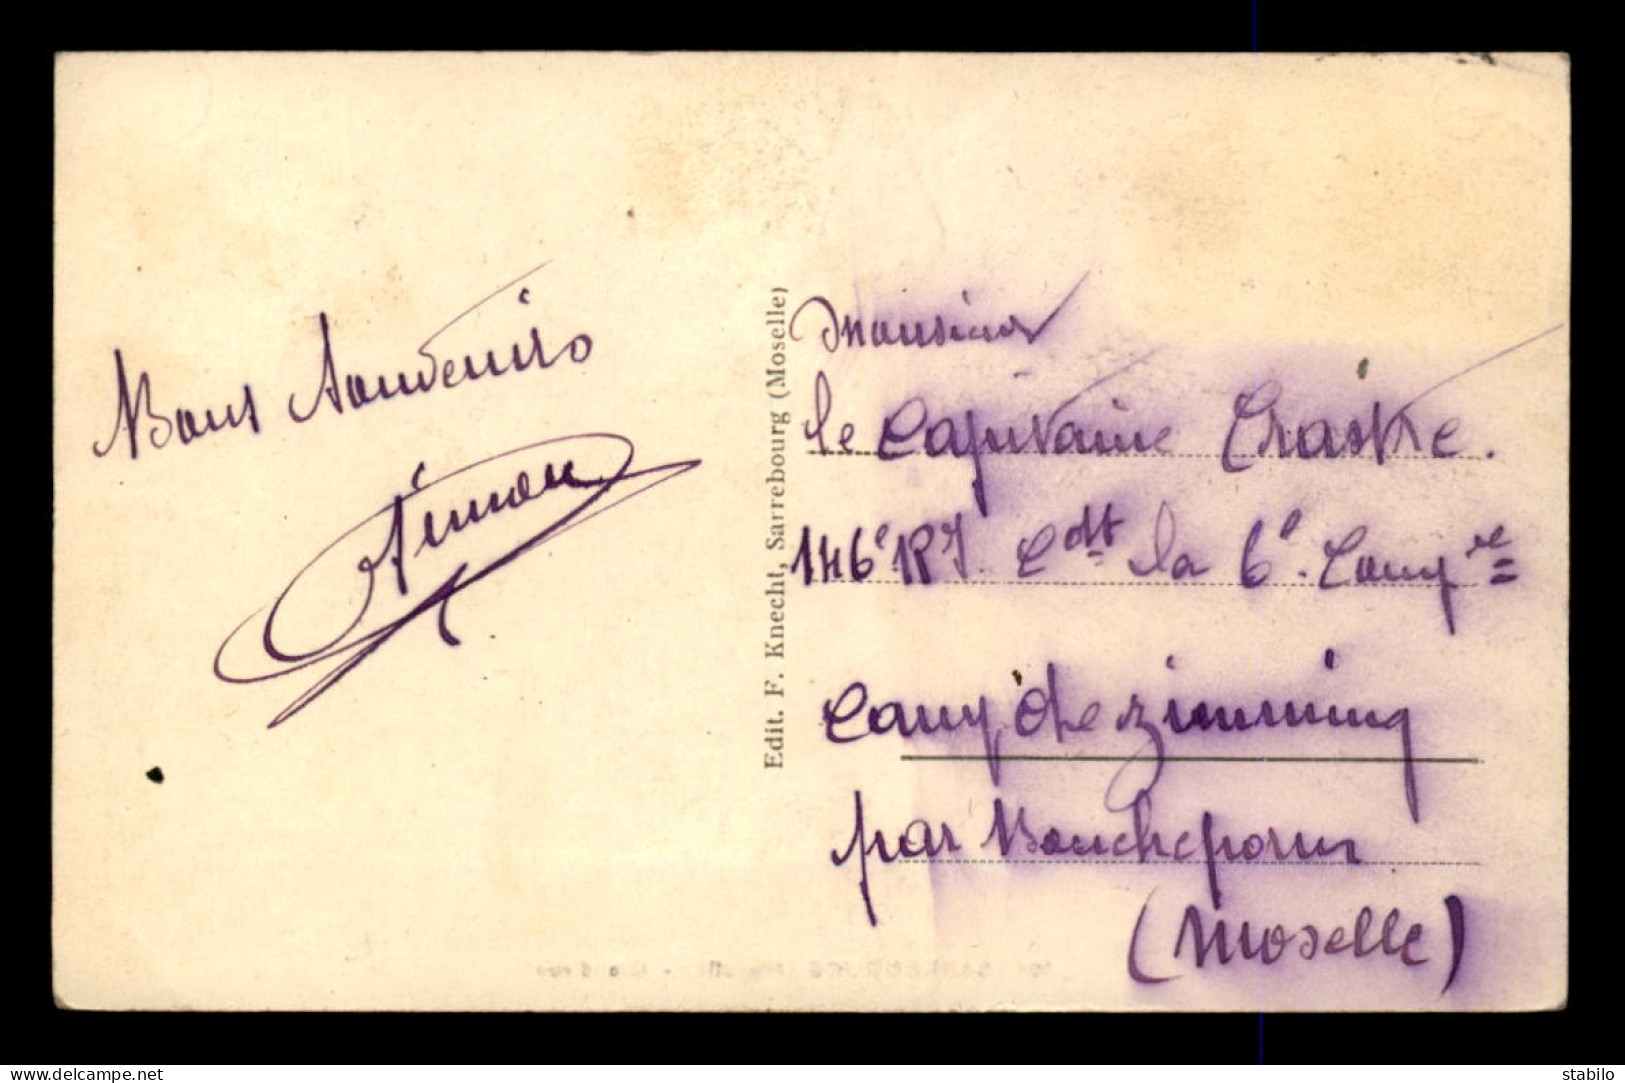 Bons Souvenirs
Simon
Edit. F. Knecht, Sarrebourg (Moselle)
Monsieur
le Capitaine Crastre.
146e RI. Cdt la 6e. Compie
Camp de Zimming
par Boucheporn
(Moselle)
www.delcampe.net
stabilo